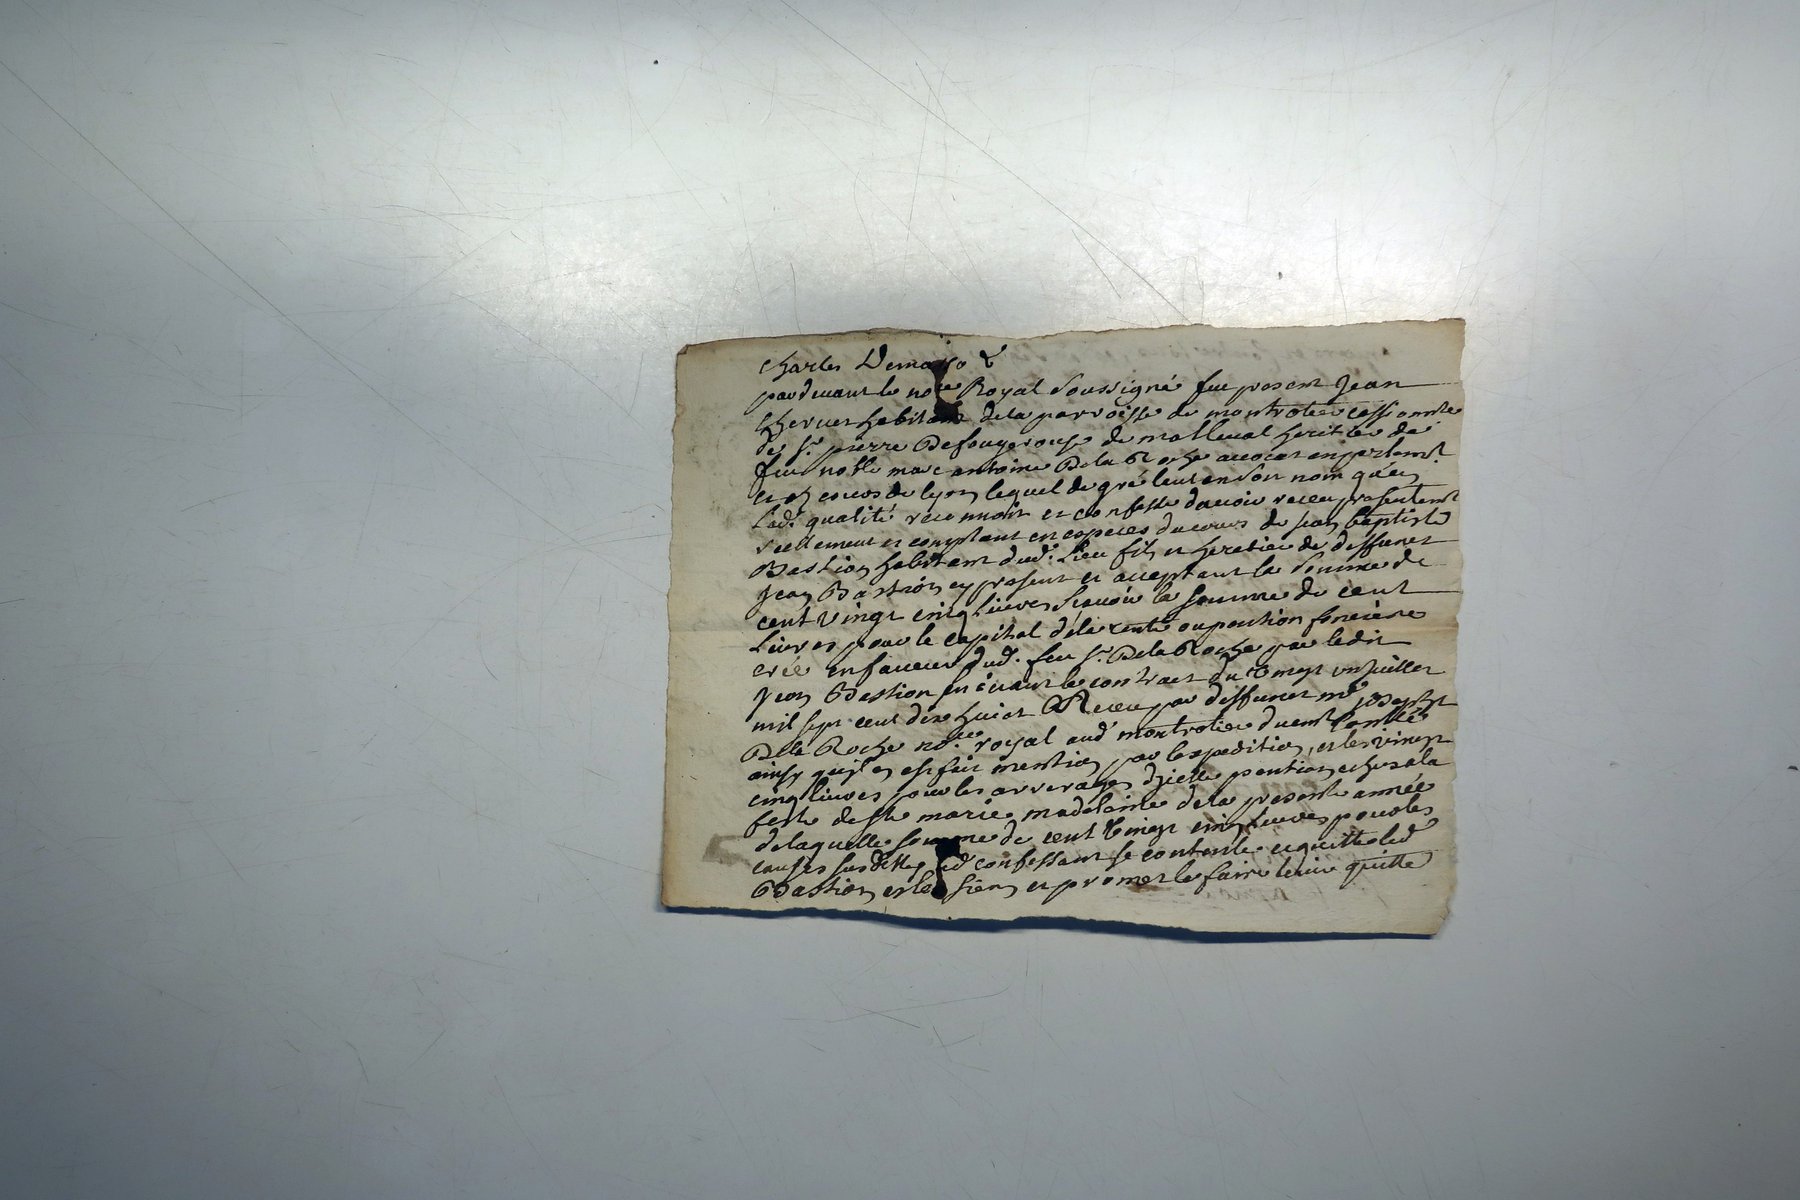 charles Dema
pardevant le no.re Royal soussigné fut present Jean
habitant de la parroisse de montrotier cessionnre
de Sr. pierre Defougerouse de malleval heritier de
feu noble marc antoine Dela Roche avocat en parlemt.
et ez cours de lyon lequel de gré tant en son nom qu'en
lad. qualité reconnoit et confesse davoir receu presentemt
reellement et comptant en especes du cours de jean baptiste
Bastion habitant dud. lieu fils et heretier de deffunct
Jean Bastion cy present et acceptant la somme de
cent vingt cinq livres sçavoir la somme de cent
livres pour le capital dela rente ou pention fonciere
crée en faveur dud. feu Sr. Dela Roche par ledit
Jean Bastion suivant le contract du vingt un juillet
mil sept cent dix huict Receu par deffunct me
Dela Roche no.re royal aud montrotier duemt controllé
ainsy quil en est fait mention par lexpedition, et les vingt
cinq livres pour les arrerages dicelle pention echus a la
feste de ste marie madelaine dela presente année
delaquelle somme de cent vingt cinq livres pour les
causes susdittes led confessant se contente et quitte led
Bastion et les siens et promet le faire tenir quitte